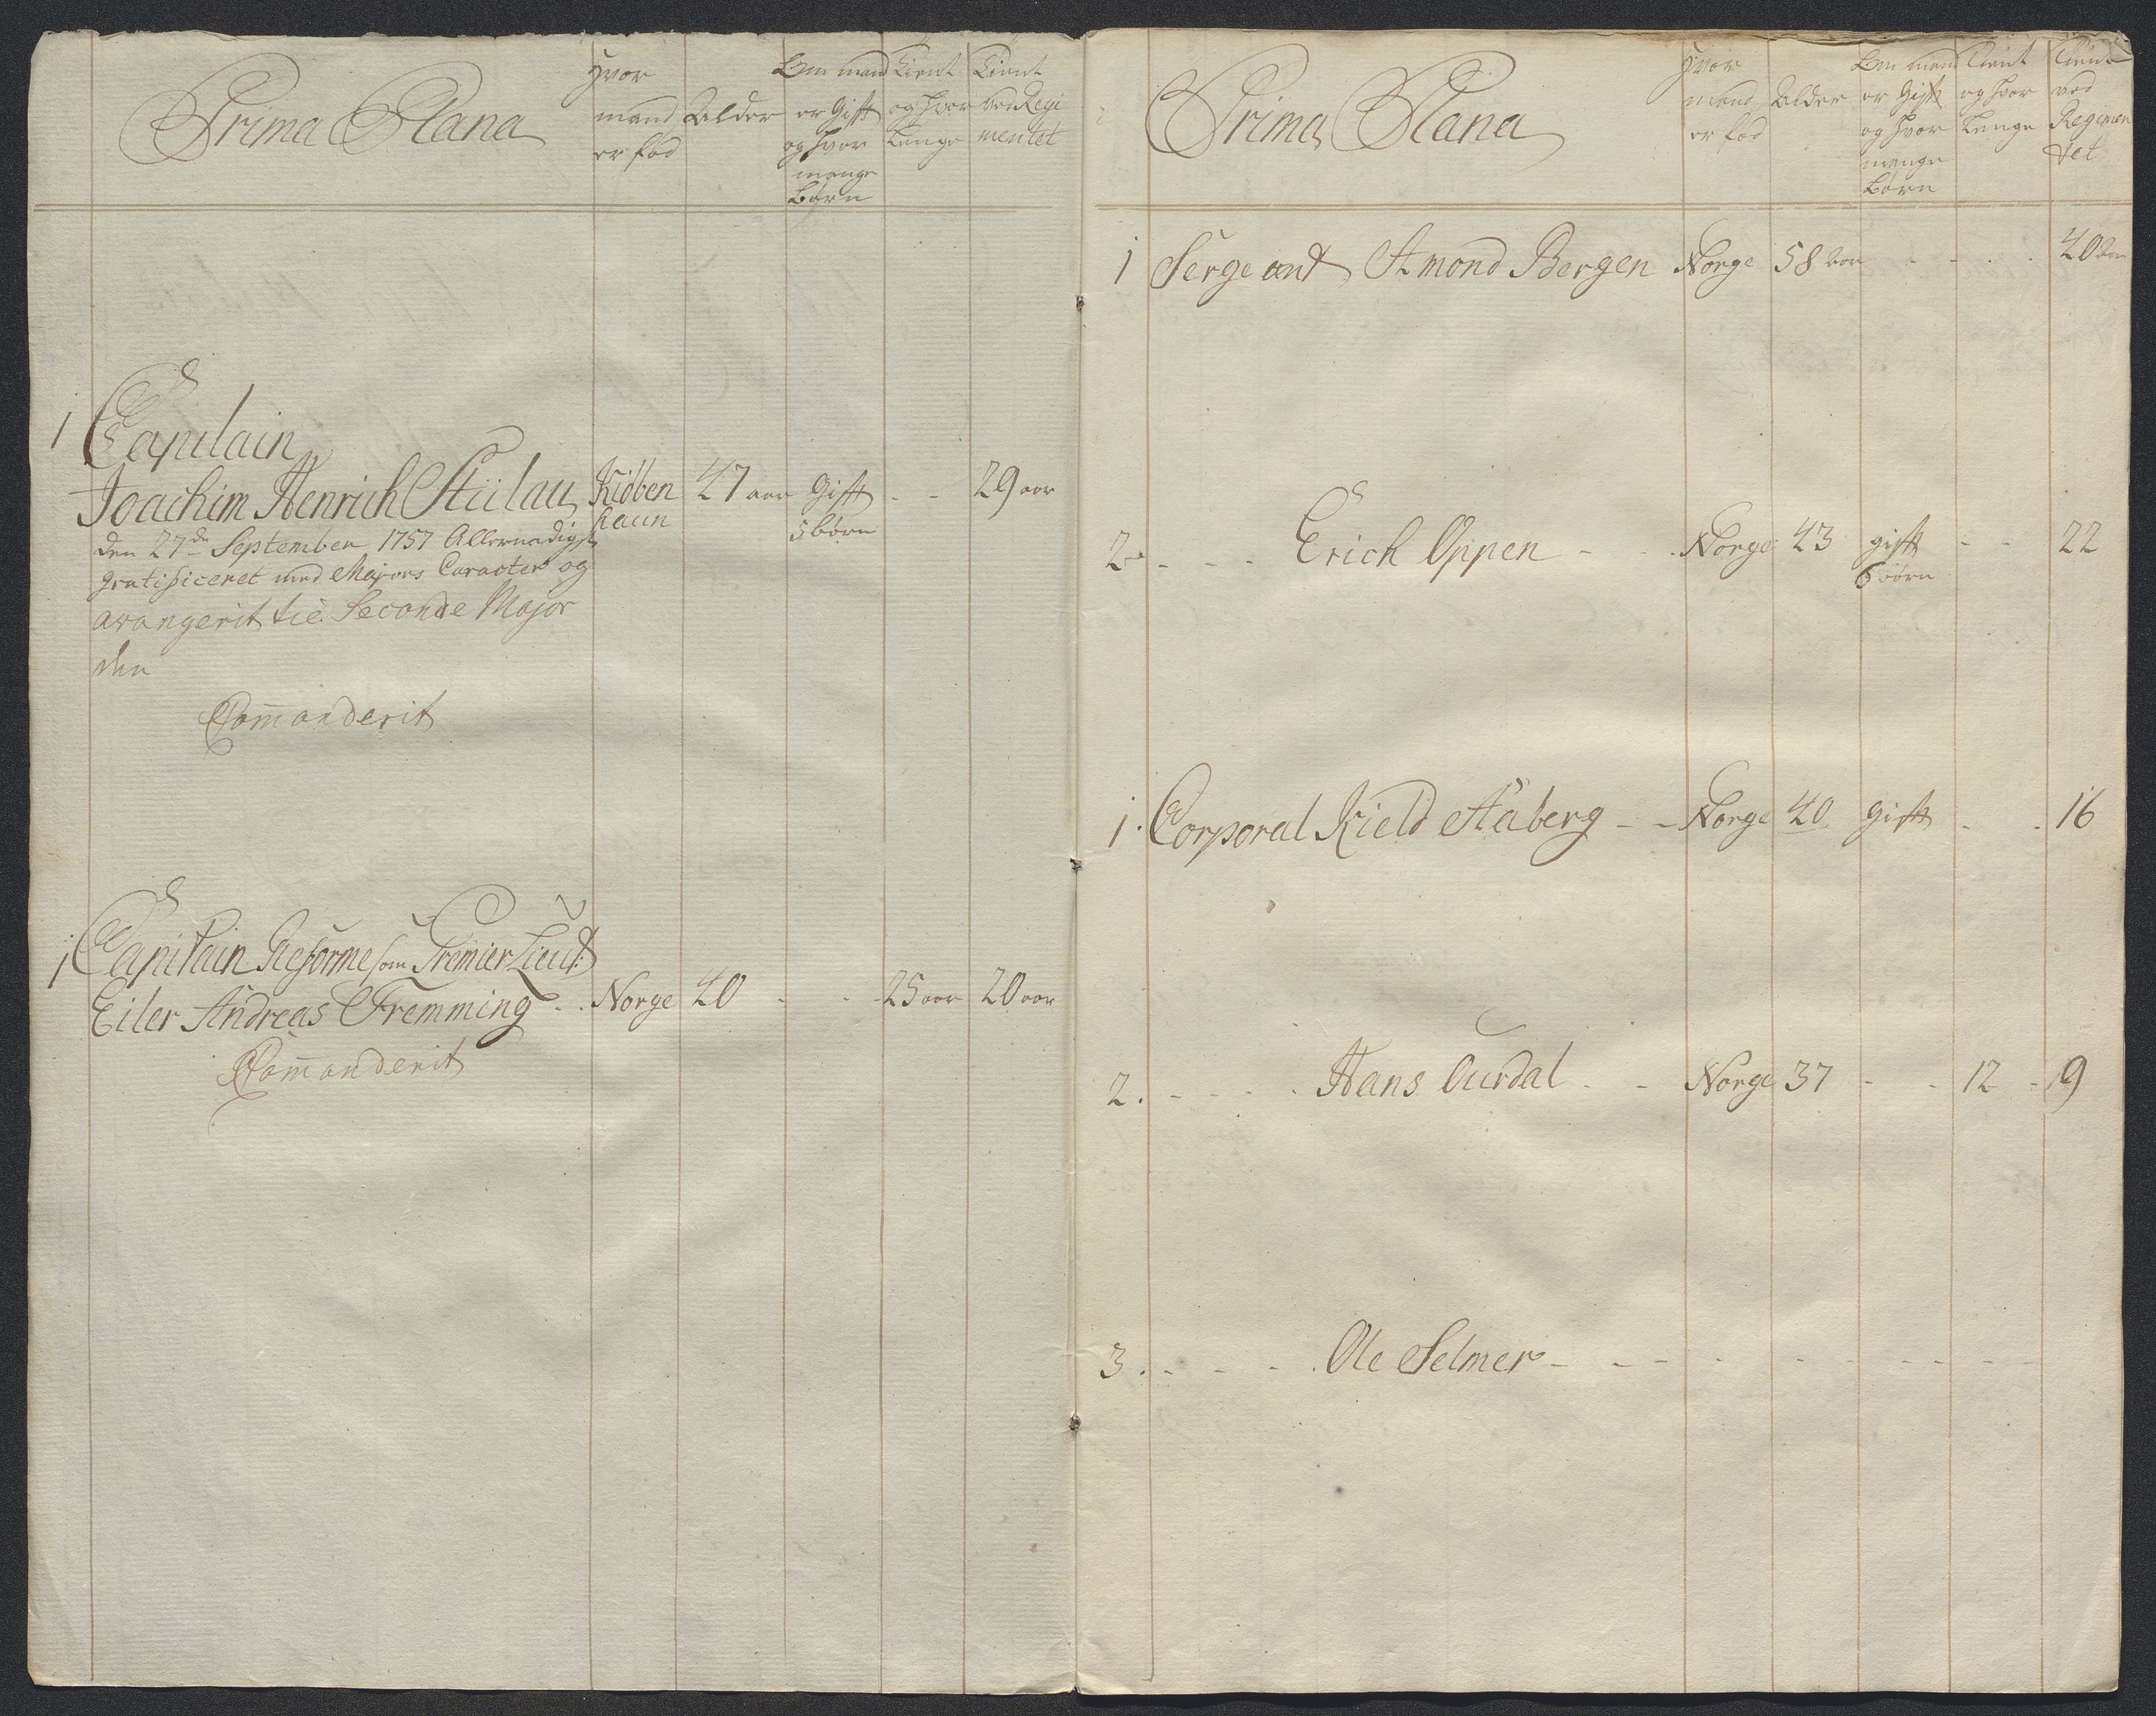 Prima Plana
Hvor
mand
er fød
Alder
Om mand
er Gift
og hvor
mange
Børn
Tient
og hvor
lenge
Tient
ved Regi
mentet
1 Capitain
Joachim Henrich Stülau Kiöben
haun 47 aar Gift - - 29 aar
5 börn
den 27de September 1757 Allernadigst
gratificeret med Majors Caracter og
avangerit til Seconde Major
den
Commanderit
1 Capitain Reforme som Premier Lieut:
Eiler Andreas Fremming - . Norge 40 - - 25 aar 20 aar
Commanderit
Prima Plana
Hvor
mand
er fød
Alder
Om mand
er Gift
og hvor
mange
Børn
Tient
og hvor
lenge
Tient
ved
Regimen
tet
1 Sergeant Amond Bergen Norge 58 aar - - . . 40 aar
2 - - - Erich Oppen - - . Norge 43 gift - - 22
6 börn
1. Corporal Kield Aaberg - - Norge 40 Gift - . 16
2. - - - . Hans Ourdal . - Norge 37 - - 12 - 9
3. - - - . Ole Selmer - - - - - - - - -